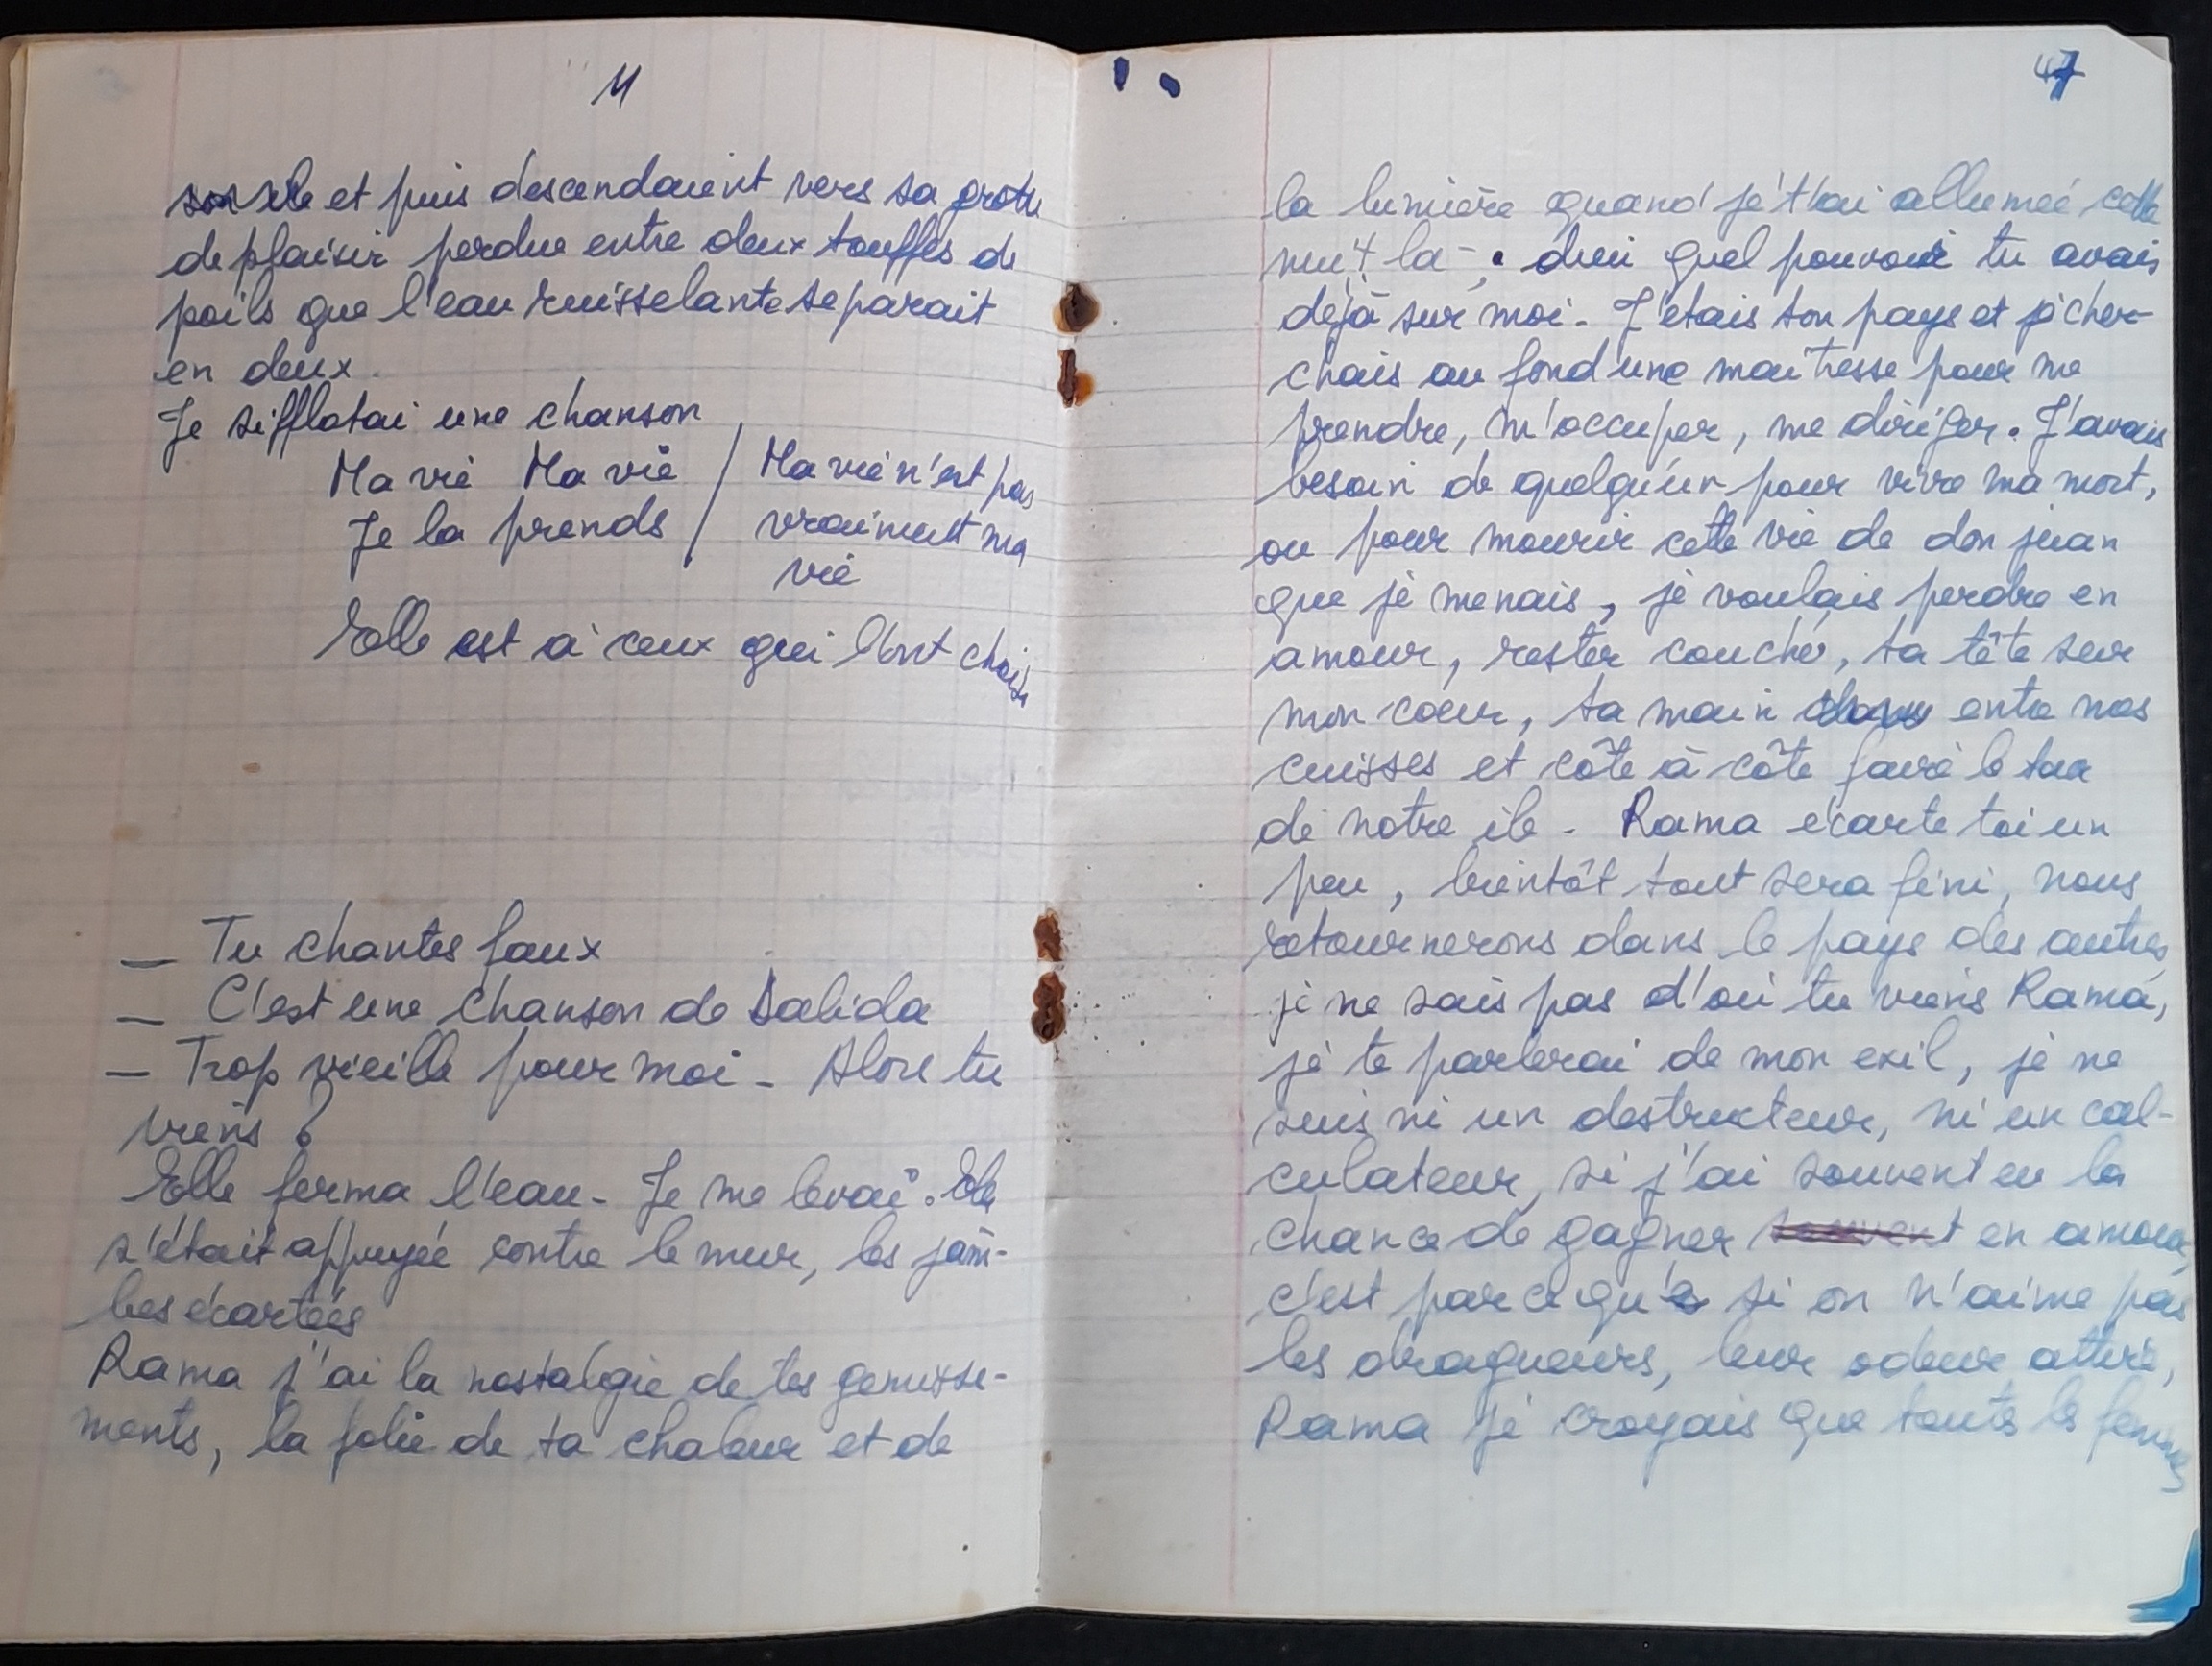 11
et puis descendaient vers sa grotte
de plaisir perdue entre deux touffes de
poils que l'eau ruisselante separait
en deux.
Je sifflotai une chanson
Ma vie Ma vie / Ma vie n'est pas
Je la prends / vraiment ma
vie
Elle est à ceux qui l'ont choisi
— Tu chantes faux
— C'est une chanson de Dalida
— Trop vieille pour moi - Alors tu
viens ?
Elle ferma l'eau - Je me levai. Elle
s'était appuyée contre le mur, les jam-
bes écartées
Rama j'ai la nostalgie de tes gemisse-
ments, la folie de ta chaleur et de
47
la lumière quand je t'ai allumée cette
nuit là - dieu quel pouvoir tu avais
déjà sur moi. J'étais ton pays et je cher-
chais au fond une maîtresse pour me
prendre, m'occuper, me diriger. J'avais
besoin de quelqu'un pour vivre ma mort,
ou pour mourir cette vie de don juan
que je menais, je voulais perdre en
amour, rester couché, ta tête sur
mon coeur, ta main entre nos
cuisses et côte à côte faire le
de notre île - Rama écarte toi un
peu, bientôt tout sera fini, nous
retournerons dans le pays des autres,
je ne sais pas d'où tu viens Rama,
je te parlerai de mon exil, je ne
suis ni un destructeur, ni un cal-
culateur, si j'ai souvent eu la
chance de gagner souvent en amour,
c'est parce qu'à si on n'aime pas
les dragueurs, leur odeur attire,
Rama je croyais que toutes les femmes